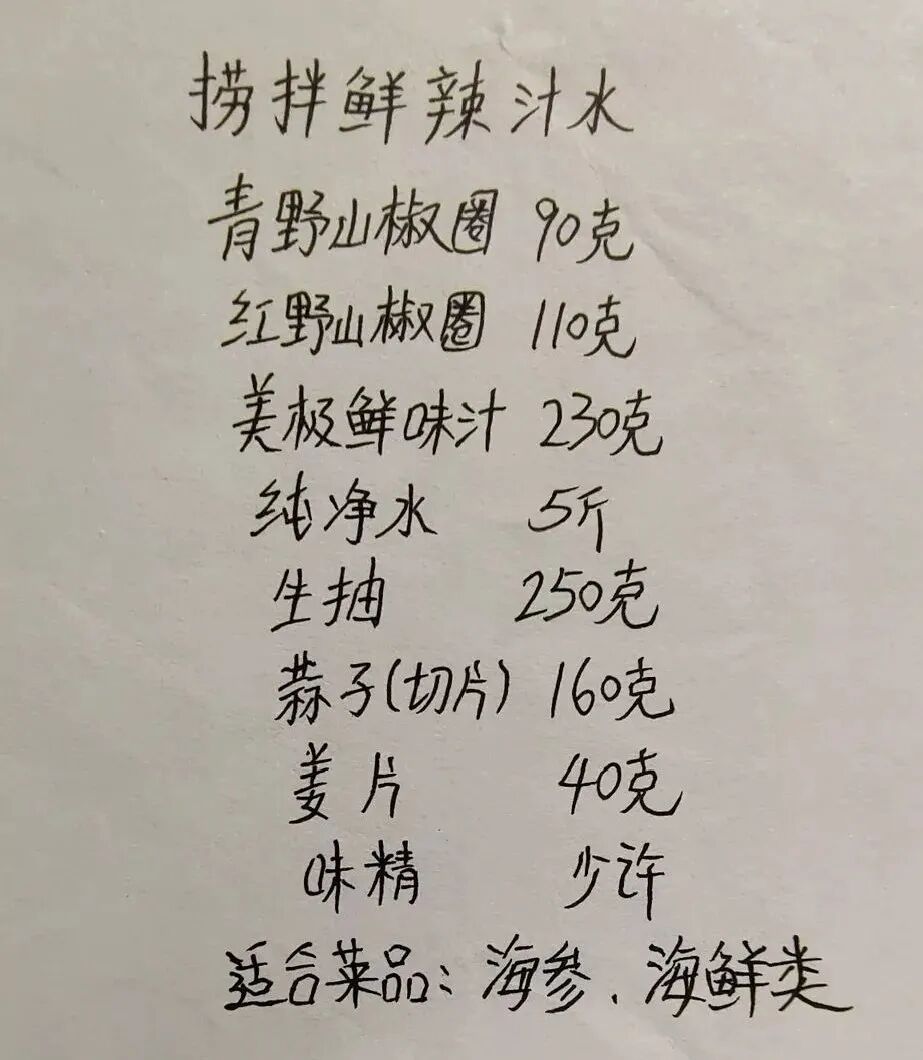 捞拌鲜辣汁水
青野山椒圈 90克
红野山椒圈 110克
美极鲜味汁 230克
纯净水 5斤
生抽 250克
蒜子(切片) 160克
姜片 40克
味精 少许
适合菜品: 海参、海鲜类